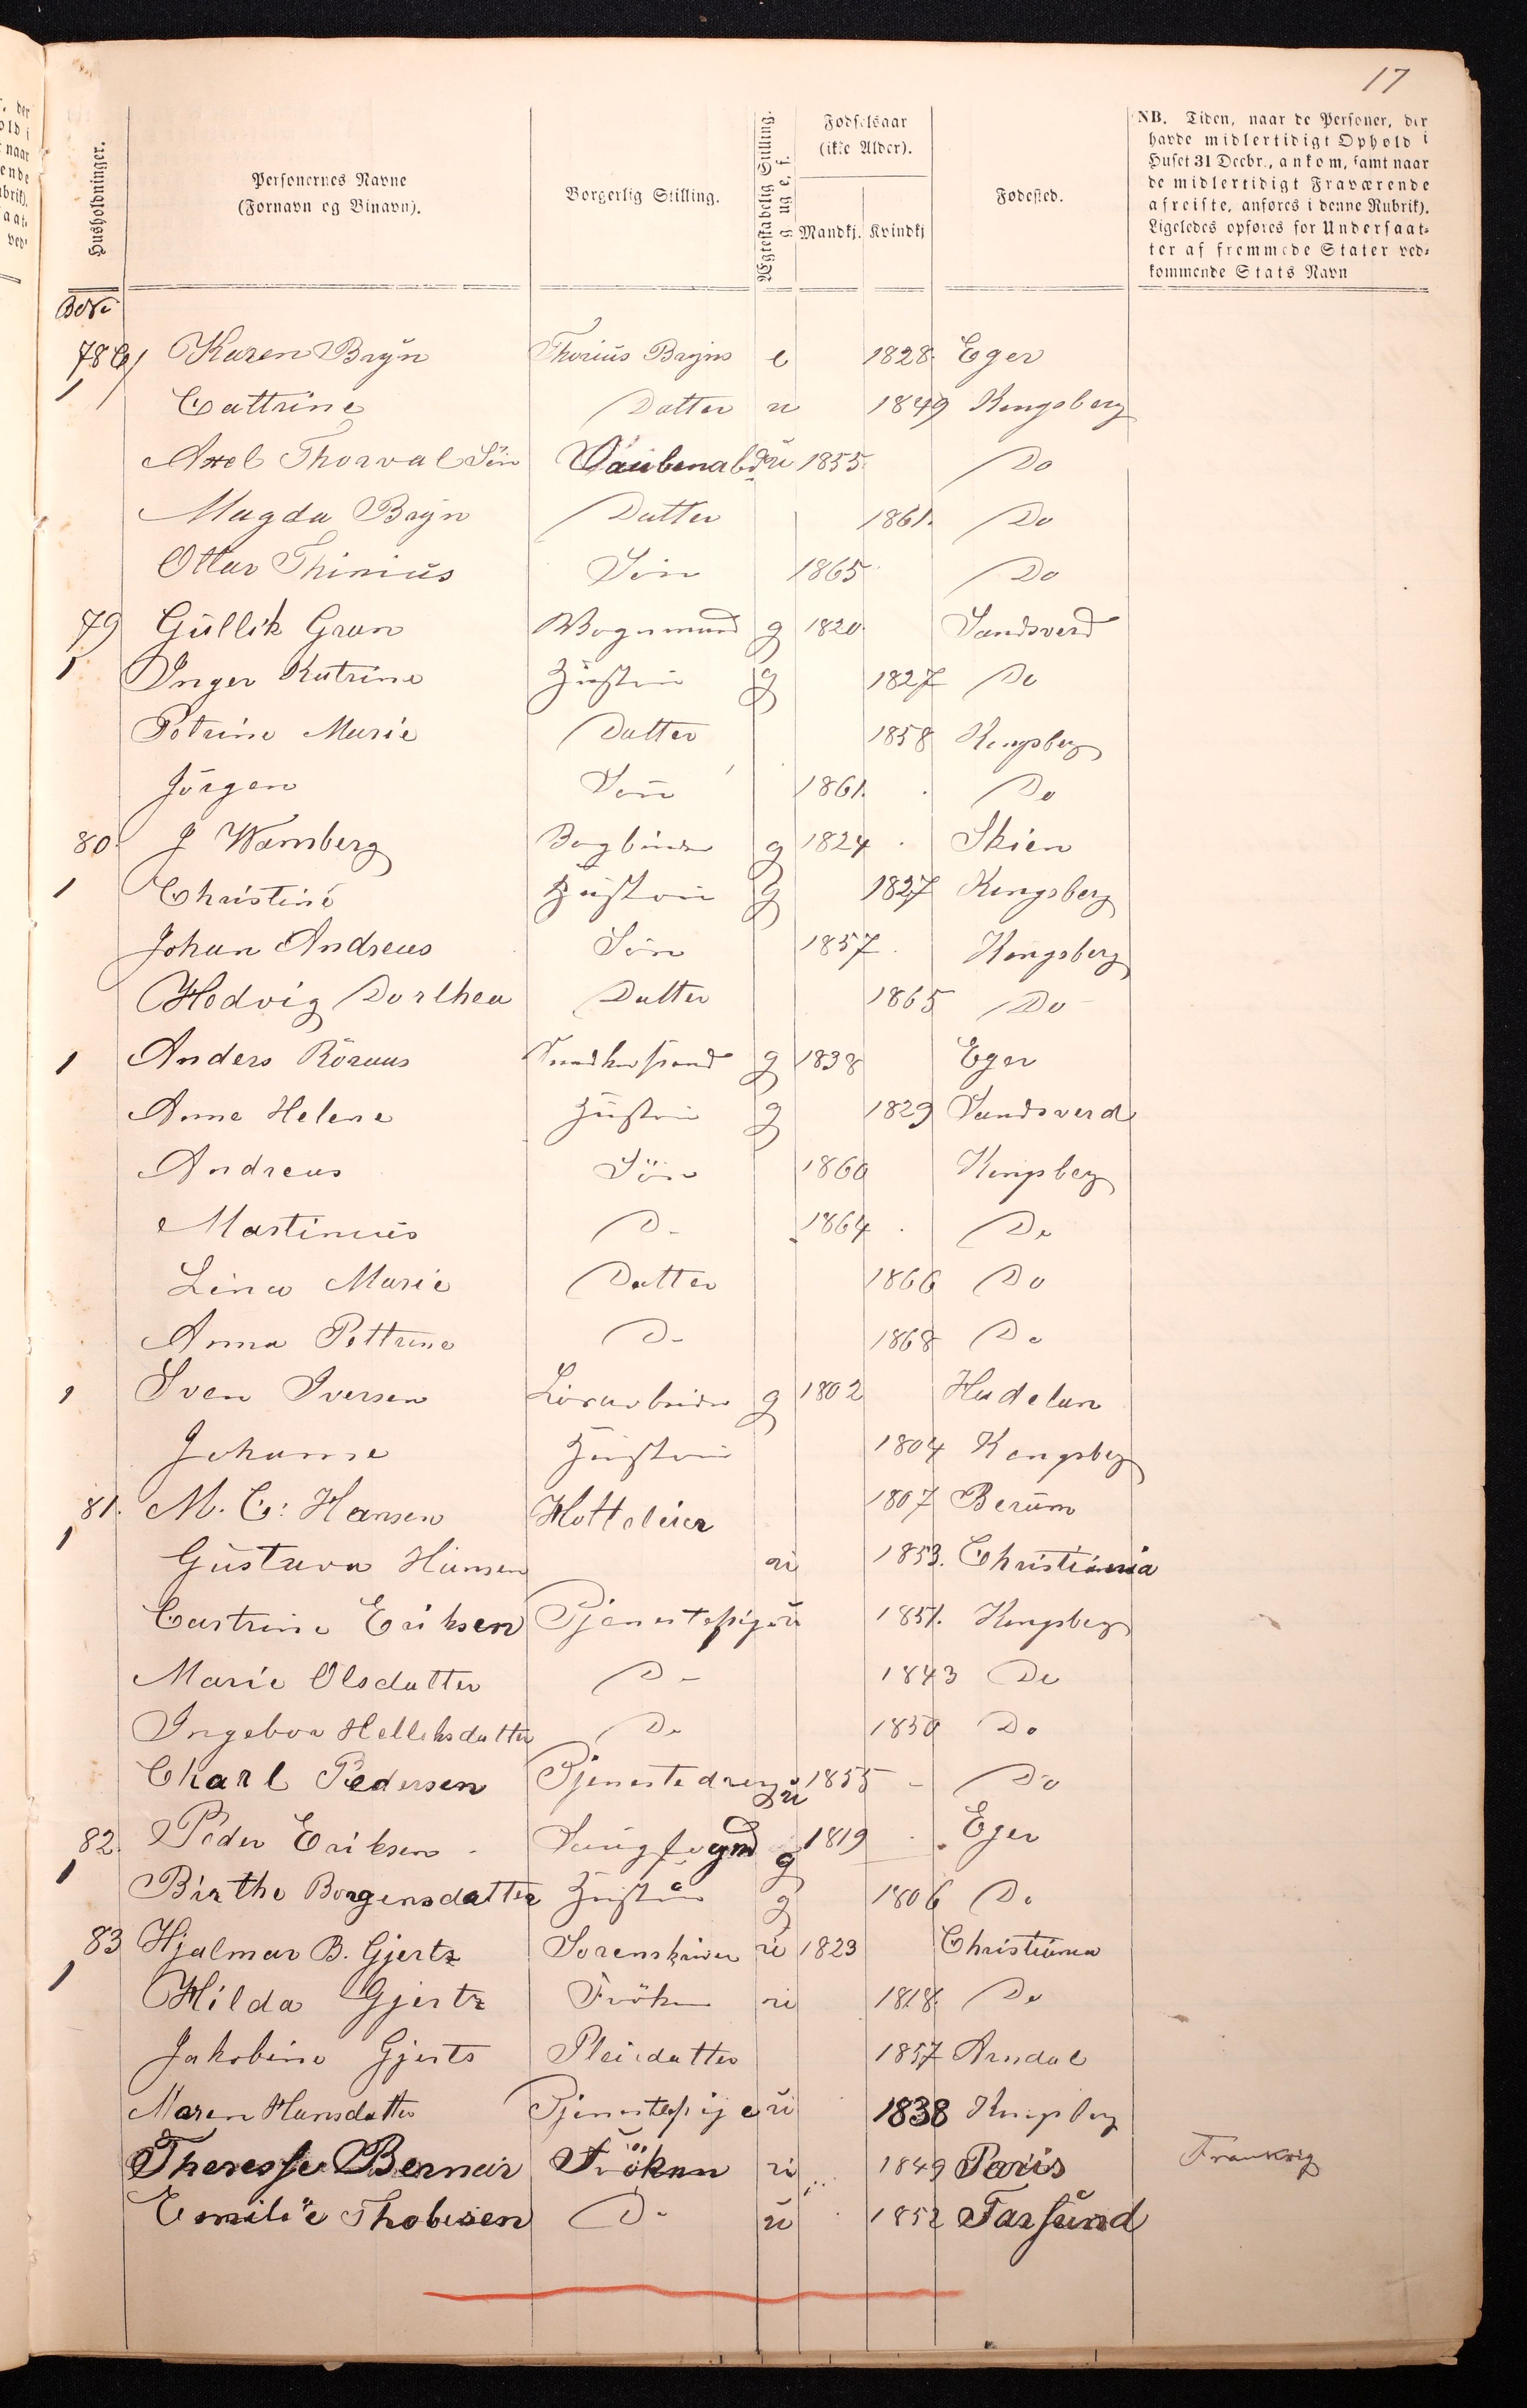 17
Husholdninger.
Personernes Navne
(Fornavn og Binavn).
Borgerlig Stilling.
Ægteskabelig Stilling.
g. ug e. f.
Fødselsaar
(ikke Alder).
Mandkj. Kvindkj
Fødested.
NB. Tiden, naar de Personer, der
havde midlertidigt Ophold i
Huset 31 Decbr., ankom, samt naar
de midlertidigt Fraværende
afreiste, anføres i denne Rubrik).
Ligeledes opføres for Undersaat-
ter af fremmede Stater ved-
kommende Stats Navn
78 Karen Bryn e 1828 Eger
1 Cattrine Datter u 1849 Kongsberg
Axel Thorval Sön u 1855 Do
Magda Bryn Datter 1861. Do
Ottar Thinius Sön 1865 Do
79 Güllik Gran Vognmand g 1820. Sandsverd
1 Inger Katrine Hustru g 1827 Do
Petrine Marie Datter 1858 Kongsberg
Jörgen Sön 1861. Do
80 J Wamberg Bogbinder g 1824 Skien
1 Christine Hustru g 1827 Kongsberg
Johan Andreas Sön 1857 Kongsberg
Hedvig Dorthea Datter 1865 Do
1 Anders Röraas g 1838 Eger
Anne Helene Hustru g 1829 Sandsverd
Andreas Sön 1860 Kongsberg
Martinus Do 1864 Do
Lina Marie Datter 1866 Do
Anna Pettrine Do 1868 Do
1 Sven Iversen g 1802 Hadelan
Johanne Hustru 1804 Kongsberg
81. M. C: Hansen Hotteleier 1807 Berüm
1 Gustava Hansen u 1853. Christiania
Castrine Eriksen Tjenestepige u 1851. Kongsberg
Marie Olsdatter Do 1843 Do
Ingebor Helleksdatter Do 1850 Do
Charl Pedersen Tjenestedreng u 1855 Do
82. Peder Eriksen g 1819 Eger
1 Birthe Borgensdatter Hustru g 1806 Do
83 Hjalmar B. Gjertz Sorenskriver u 1823 Christiania
1 Hilda Gjertz Fröken u 1818. Do
Jakobine Gjerts Pleiedatter 1857 Arndal
Maren Hansdatter Tjenestepige u 1838 Kongsberg
Theresse Bernar Fröken u 1849 Paris Frankrig
Emilie Thobisen Do u 1852 Farsund